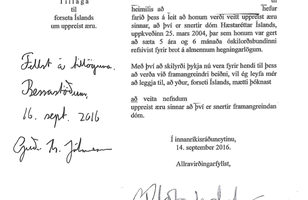 Tillaga
til
forseta Íslands
um uppreist æru.
Fellst á tillöguna.
Bessastöðum,
16. sept. 2016
heimilis að
hefur
farið þess á leit að honum verði veitt uppreist æru
sinnar, að því er snertir dóm Hæstaréttar Íslands,
uppkveðinn 25. mars 2004, þar sem honum var gert
að sæta 5 ára og 6 mánaða óskilorðsbundinni
refsivist fyrir brot á almennum hegningarlögum.
Með því að skilyrði þykja nú vera fyrir hendi til þess
að verða við framangreindri beiðni, vil ég leyfa mér
að leggja til, að yður, forseti Íslands, mætti þóknast
að veita nefndum
uppreist æru sinnar að því er snertir framangreindan
dóm.
Í innanríkisráðuneytinu,
14. september 2016.
Allravirðingarfyllst,